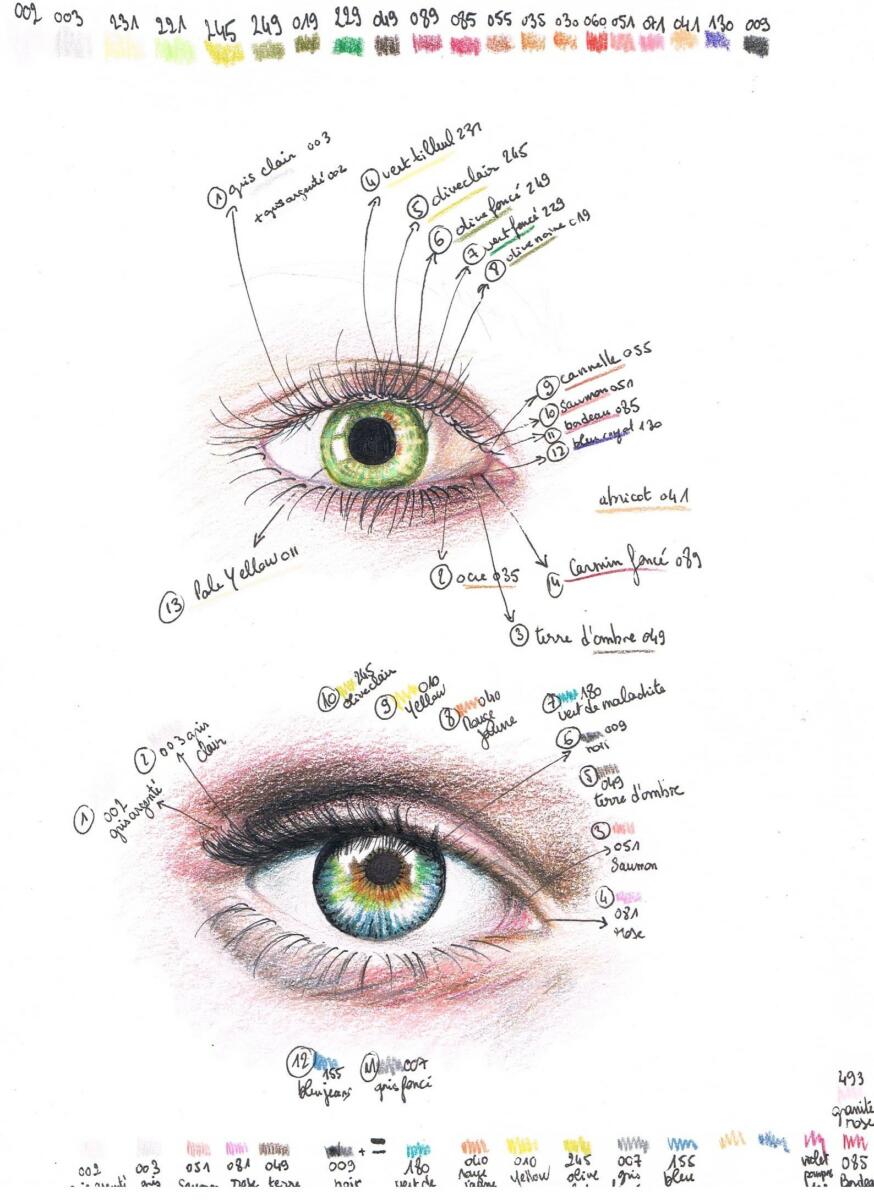 002 003 231 221 245 249 019 229 049 089 085 055 035 030 060 051 071 041 130 009
1 gris clair 003
+ gris argenté 002
4 vert tilleul 231
5 olive clair 245
6 olive foncé 249
7 vert foncé 229
8 olive noire 019
9 cannelle 055
10 Saumon 051
11 bordeau 085
12 bleu 130
abricot 041
13 Pale Yellow 011
2 ocre 035
14 Carmin foncé 089
3 terre d'ombre 049
10 245
olive clair
9 010
Yellow
8 040
Rouge
jaune
7 180
vert de malachite
6 009
noir
5
049
terre d'ombre
2 003 gris
clair
1 002
gris argenté
3
051
Saumon
4
081
rose
12
155
bleu jeans
11 007
gris foncé
493
granite
rose
+ =
002 003 051 081 049 009 180 040 010 245 007 155 violet 085
gris Saumon rose terre noir vert de rouge Yellow olive gris bleu pourpre Bordeau
jaune